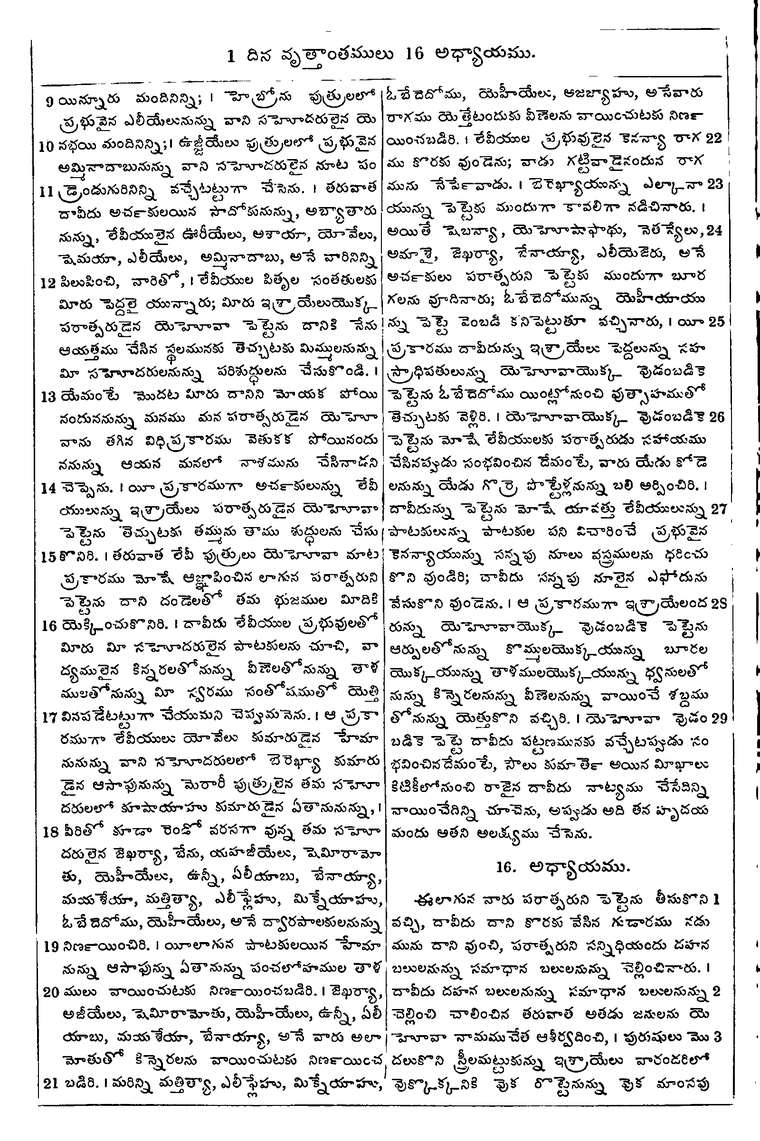 1 దిన వృత్తాంతములు 16 అధ్యాయము.
9 యిన్నూరు మందినిన్ని; । హెబ్రోను పుత్రులలో
ప్రభువైన ఎలీయేలునున్ను వాని సహోదరులైన యె
10 నభయి మందినిన్ని; । ఉజ్జీయేలు పుత్రులలో ప్రభువైన
అమ్మినాదాబునున్ను వాని సహోదరులైన నూట పం
11 డ్రెండుగురినిన్ని వచ్చేటట్టుగా చేసెను. । తరువాత
దావీదు అర్చకులయిన సాదోకునున్ను, అబ్యాతారు
నున్ను, లేవీయులైన ఊరీయేలు, అశాయా, యోవేలు,
షెమయా, ఎలీయేలు, అమ్మినాదాబు, అనే వారినిన్ని
12 పిలుపించి, వారితో, । లేవీయుల పితృల సంతతులకు
మీరు పెద్దలై యున్నారు; మీరు ఇశ్రాయేలుయొక్క
పరాత్పరుడైన యెహోవా పెట్టెను దానికి నేను
ఆయత్తము చేసిన స్థలమునకు తెచ్చుటకు మిమ్ములనున్ను
మీ సహోదరులనున్ను పరిశుద్ధులను చేసుకొండి. ।
13 యేమంటే మొదట మీరు దానిని మోయక పోయి
నందుననున్ను మనము మన పరాత్పరుడైన యెహో
వాను తగిన విధిప్రకారము వెతుకక పోయినందు
ననున్ను ఆయన మనలో నాశమును చేసినాడని
14 చెప్పెను. । యీ ప్రకారముగా అర్చకులున్ను లేవీ
యులున్ను ఇశ్రాయేలు పరాత్పరుడైన యెహోవా
పెట్టెను తెచ్చుటకు తమ్మును తాము శుద్ధులను చేసు
15 కొనిరి. । తరువాత లేవీ పుత్రులు యెహోవా మాట
ప్రకారము మోషే ఆజ్ఞాపించిన లాగున పరాత్పరుని
పెట్టెను దాని దండెలతో తమ భుజముల మీదికి
16 యెక్కించుకొనిరి. । దావీదు లేవీయుల ప్రభువులతో
మీరు మీ సహోదరులైన పాటకులను చూచి, వా
ద్యములైన కిన్నరలతోనున్ను వీణెలతోనున్ను తాళ
ములతోనున్ను మీ స్వరము సంతోషముతో యెత్తి
17 వినపడేటట్టుగా చేయుమని చెప్పుమనెను. । ఆ ప్రకా
రముగా లేవీయులు యోవేలు కుమారుడైన హేమా
నునున్ను వాని సహోదరులలో బెరెఖ్యా కుమారు
డైన ఆసాఫునున్ను మెరారీ పుత్రులైన తమ సహో
దరులలో కూషాయాహు కుమారుడైన ఏతానునున్ను, ।
18 వీరితో కూడా రెండో వరసగా వున్న తమ సహో
దరులైన జెఖర్యా, బేను, యహజీయేలు, షెమిరామో
తు, యెహీయేలు, ఉన్నీ, ఏలీయాబు, బేనాయ్యా,
మయశేయా, మత్తిత్యా, ఎలీఫ్లేహు, మిక్నేయాహు,
ఓబేదెదోము, యెహీయేలు, అనే ద్వారపాలకులనున్ను
19 నిర్ణయించిరి. । యీలాగున పాటకులయిన హేమా
నున్ను ఆసాఫున్ను ఏతానున్ను పంచలోహముల తాళ
20 ములు వాయించుటకు నిర్ణయించబడిరి. । జెఖర్యా,
అజీయేలు, షెమీరామోతు, యెహీయేలు, ఉన్నీ, ఏలీ
యాబు, మయశేయా, బేనాయ్యా, అనే వారు అలా
మోతుతో కిన్నెరలను వాయించుటకు నిర్ణయించ
21 బడిరి. । మరిన్ని మత్తిత్యా, ఎలీఫ్లేహు, మిక్నేయాహు,
ఓబేదెదోము, యెహీయేలు, అజజ్యాహు, అనేవారు
రాగము యెత్తేటందుకు వీణెలను వాయించుటకు నిర్ణ
యించబడిరి. । లేవీయుల ప్రభువులైన కెనన్యా రాగ 22
ము కొరకు వుండెను; వాడు గట్టివాడైనందున రాగ
మును నేర్పేవాడు. । బెరెఖ్యాయున్ను ఎల్కానా 23
యున్ను పెట్టెకు ముందుగా కావలిగా నడిచినారు. ।
అయితే షెబన్యా, యెహోషాఫాథు, నెతన్యేలు, 24
అమాశై, జెఖర్యా, బేనాయ్యా, ఎలీయెజెరు, అనే
అర్చకులు పరాత్పరుని పెట్టెకు ముందుగా బూర
గలను వూదినారు; ఓబేదెదోమున్ను యెహీయాయు
న్ను పెట్టె వెంబడి కనిపెట్టుతూ వచ్చినారు, । యీ 25
ప్రకారము దావీదున్ను ఇశ్రాయేలు పెద్దలున్ను సహ
స్రాధిపతులున్ను యెహోవాయొక్క వుడంబడికె
పెట్టెను ఓబేదెదోము యింట్లోనుంచి వుత్సాహముతో
తెచ్చుటకు వెళ్లిరి. । యెహోవాయొక్క వుడంబడికె 26
పెట్టెను మోషే లేవీయులకు పరాత్పరుడు సహాయము
చేసినప్పుడు సంభవించిన దేమంటే, వారు యేడు కోడె
లనున్ను యేడు గొర్రె పొట్టేళ్లనున్ను బలి అర్పించిరి. ।
దావీదున్ను పెట్టెను మోషే యావత్తు లేవీయులున్ను 27
పాటకులున్ను పాటకుల పని విచారించే ప్రభువైన
కెనన్యాయున్ను సన్నపు నూలు వస్త్రములను ధరించు
కొని వుండిరి; దావీదు సన్నపు నూలైన ఎఫోదును
వేసుకొని వుండెను. । ఆ ప్రకారముగా ఇశ్రాయేలంద 28
రున్ను యెహోవాయొక్క వుడంబడికె పెట్టెను
ఆర్పులతోనున్ను కొమ్ములయొక్కయున్ను బూరల
యొక్కయున్ను తాళములయొక్కయున్ను ధ్వనులతో
నున్ను కిన్నెరలనున్ను వీణెలనున్ను వాయించే శబ్దము
తోనున్ను యెత్తుకొని వచ్చిరి. । యెహోవా వుడం 29
బడికె పెట్టె దావీదు పట్టణమునకు వచ్చేటప్పుడు సం
భవించినదేమంటే, సౌలు కుమార్తె అయిన మీఖాలు
కిటికీలోనుంచి రాజైన దావీదు నాట్యము చేసేదిన్ని
వాయించేదిన్ని చూచెను, అప్పుడు అది తన హృదయ
మందు ఆతని అలక్ష్యము చేసెను.
16. అధ్యాయము.
ఈలాగున వారు పరాత్పరుని పెట్టెను తీసుకొని 1
వచ్చి, దావీదు దాని కొరకు వేసిన గుడారము నడు
మును దాని వుంచి, పరాత్పరుని సన్నిధియందు దహన
బలులనున్ను సమాధాన బలులనున్ను చెల్లించినారు. ।
దావీదు దహన బలులనున్ను సమాధాన బలులనున్ను 2
చెల్లించి చాలించిన తరువాత అతడు జనులను యె
హోవా నామముచేత ఆశీర్వదించి, । పురుషులు మొ 3
దలుకొని స్త్రీలమట్టుకున్ను ఇశ్రాయేలు వారందరిలో
వుక్కొక్కనికె వుక రొట్టెనున్ను వుక మాంసపు